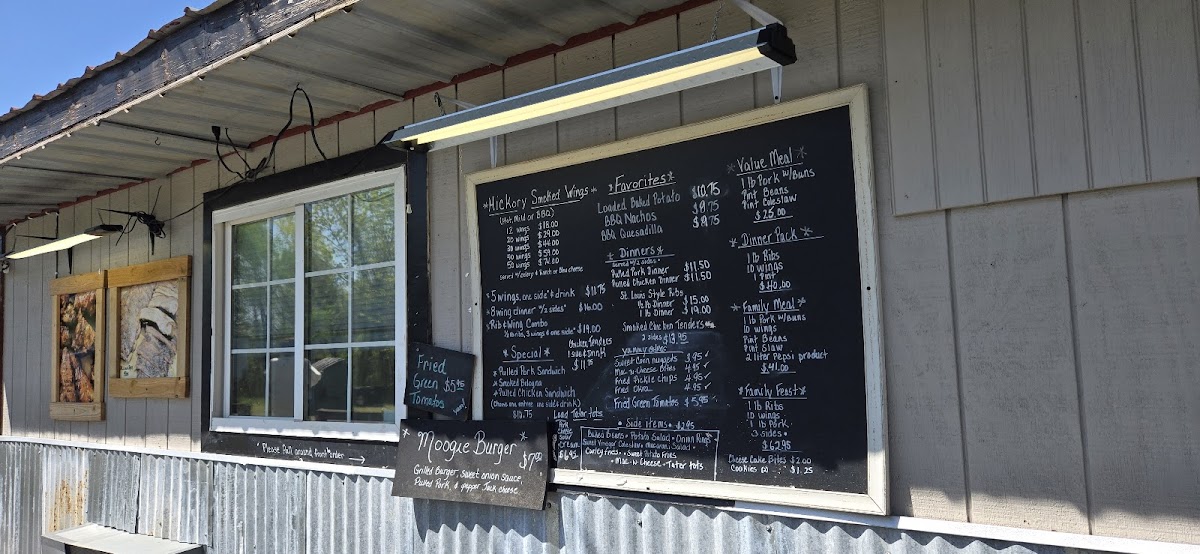 *Hickory Smoked Wings*
(Hot, Mild or BBQ)
12 wings $18.00
20 wings $29.00
30 wings $44.00
40 wings $59.00
50 wings $74.00
Served w/celery & Ranch or Bleu cheese
*5 wings, one side & drink $11.75
*8 wing dinner w/2 sides* $16.00
*Rib & Wing Combo
1/2 lb ribs, 3 wings & one side* $19.00
Chicken Tenders
1 side & Drink
$11.75
*Special*
*Pulled Pork Sandwich
*Smoked Bologna
*Pulled Chicken Sandwich
(Choose one entree one side & drink)
$10.75
Load Tater tots
*Favorites*
Loaded Baked Potato $10.75
BBQ Nachos $9.75
BBQ Quesadilla $8.75
*Dinners*
Served w/2 sides
Pulled Pork Dinner $11.50
Pulled Chicken Dinner $11.50
St Louis Style Ribs
1/2 lb Dinner $15.00
1 lb Dinner $19.00
Smoked Chicken Tenders
2 sides $13.95
yummy sides
Sweet Corn nuggets 4.95 ✓
Mac-n-Cheese Bites 4.95 ✓
Fried Pickle chips 4.95 ✓
Fried Okra 4.95 ✓
Fried Green Tomatoes $5.95
• Side items • $2.95
Baked Beans • Potato Salad • Onion Rings
Sweet Vinegar Coleslaw • Macaroni Salad •
Curly Fries • Sweet Potato Fries
• Mac-n-Cheese • Tater tots
*Value Meal*
1 lb Pork w/Buns
Pint Beans
Pint Coleslaw
$25.00
*Dinner Pack*
1 lb Ribs
10 wings
1 Pint
$40.00
*Family Meal*
1 lb Pork w/Buns
10 wings
Pint Beans
Pint Slaw
2 liter Pepsi product
$41.00
*Family Feast*
1 lb Ribs
10 wings
1 lb Pork
3 sides
$62.95
Cheese Cake Bites $2.00
Cookies (2) $1.25
Fried
Green $5.95
Tomatoes
*Please Pull around front to order →
*Moogie Burger*
Grilled Burger, sweet onion sauce,
Pulled Pork, & pepper Jack cheese